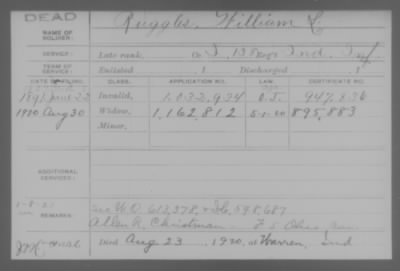 DEAD
NAME OF SOLDIER: Ruggles, William C.
SERVICE: Late rank, Co I, 138 Reg't Ind. Inf.
TERM OF SERVICE: Enlisted , 1 Discharged , 1
DATE OF FILING. CLASS. APPLICATION NO. LAW. CERTIFICATE NO.
1891 June 22 Invalid, 1,032,934 O.J. 947,836
1920 Aug 30 Widow, 1,162,812 5-1-20 895,883
Minor,
ADDITIONAL SERVICES:
REMARKS: See W.O. 613,378, & Ctf. 598,687
Allen R. Christman F 5 Ohio
Died Aug 23 1920, at Warren, Ind